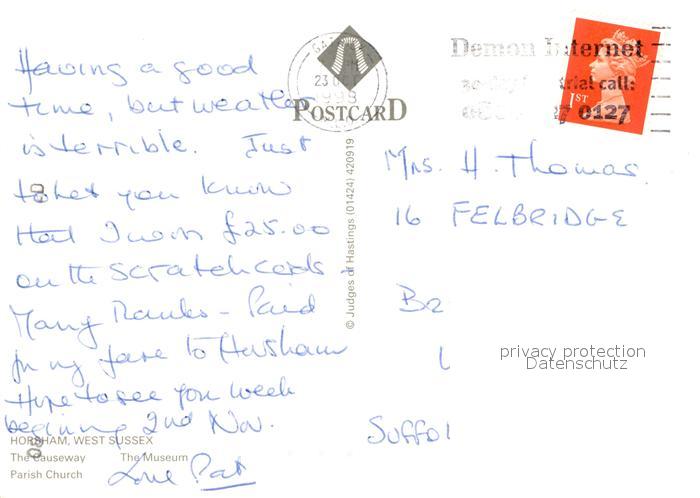 Having a good
time, but weather
is terrible. Just
to let you know
that I won £25.00
on the scratchcards -
Many Thanks - Paid
for my fare to Horsham
Hope to see you week
beginning 2nd Nov.
Love Pat
HORSHAM, WEST SUSSEX
The Causeway The Museum
Parish Church
POSTCARD
© Judges of Hastings (01424) 420919
23 OCT
Demon Internet
trial call:
0127
1ST
Mrs. H. Thomas.
16 FELBRIDGE
privacy protection
Datenschutz